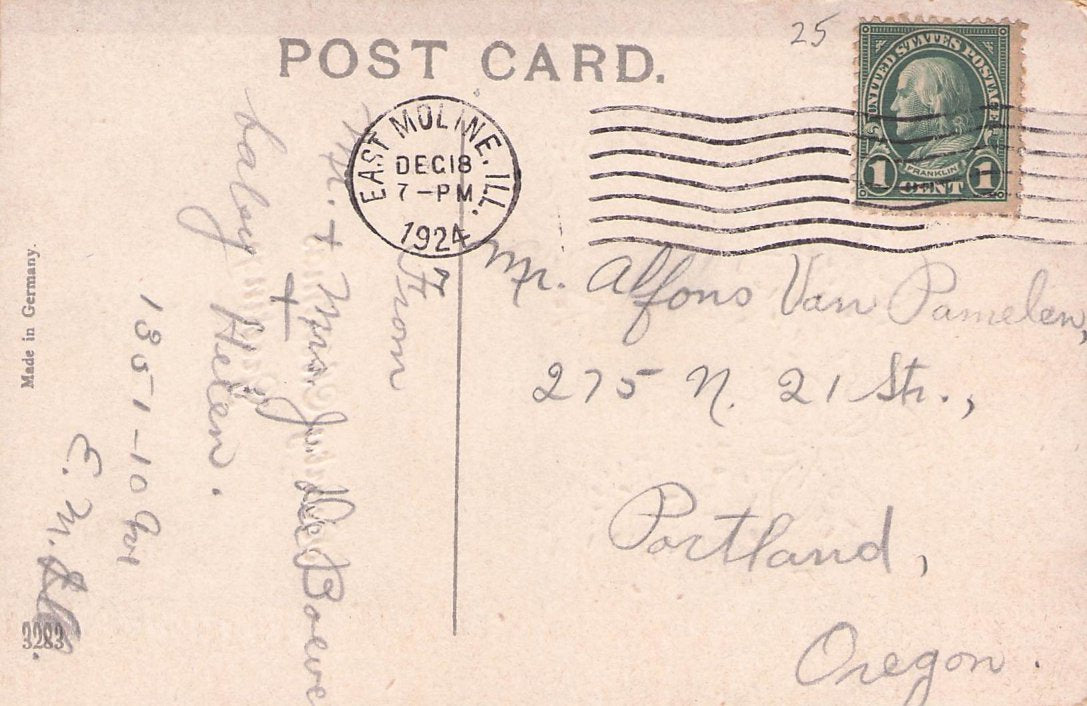 25
POST CARD.
UNITED STATES POSTAGE
FRANKLIN
1 CENT 1
EAST MOLINE, ILL.
DEC 18
7-PM
1924
Mr. Alfons Van Pamelen,
275 N. 21 Str.,
Portland,
Oregon.
From
Mr. + Mrs. J. De Boeve
+
baby Helen.
1351-10 Av
E. M. Ill.
Made in Germany.
3283